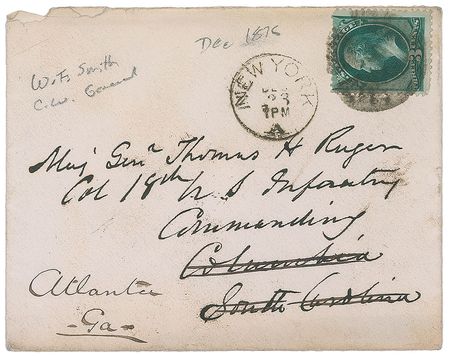 Dec 1876
W.F. Smith
C.W. General
NEW YORK
DEC
23
7PM
Maj Genl Thomas H Ruger
Col 18th U S Infantry
Commanding
Columbia
South Carolina
Atlanta
Ga